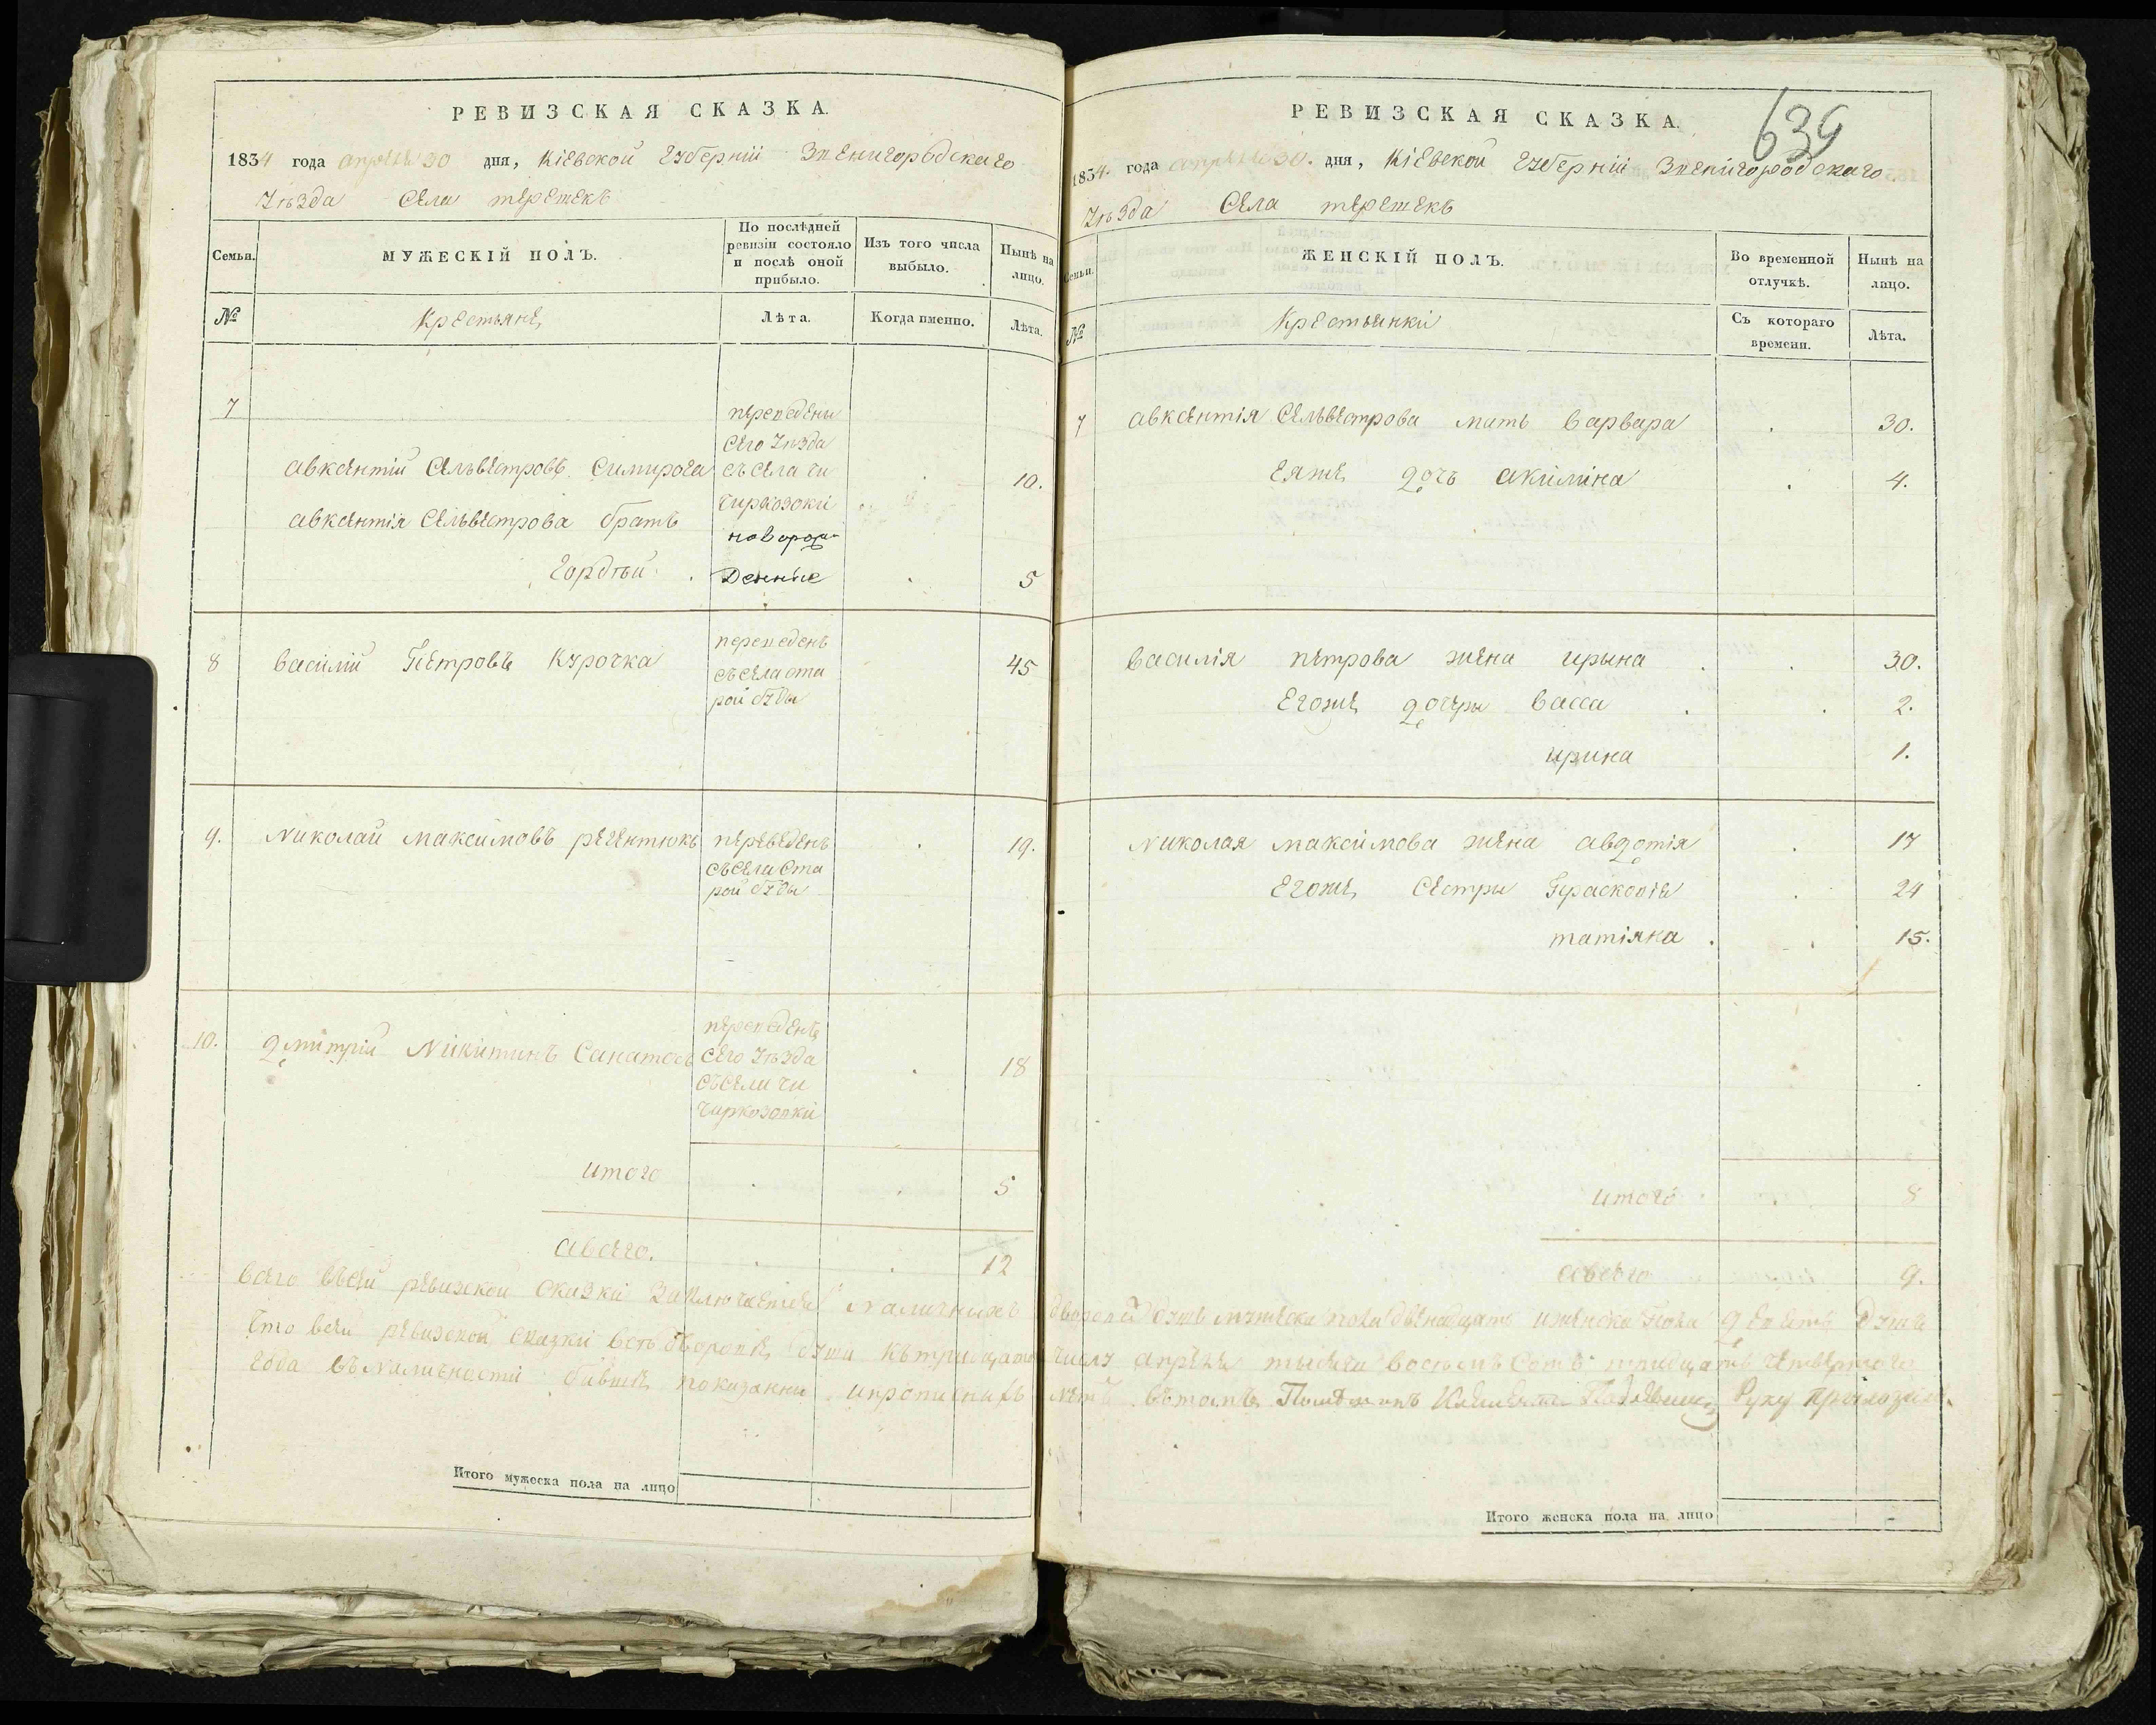 РЕВИЗСКАЯ СКАЗКА.
1834 года апреля 30 дня, Кіевской Губерніи Звенигородскаго
Уѣзда Села терешекъ
Семьи. МУЖЕСКІЙ ПОЛЪ. По послѣдней ревизіи состояло и послѣ оной прибыло. Изъ того числа выбыло. Нынѣ на лицо.
№ Крестьяне Лѣта. Когда именно. Лѣта.
7 переведени
сего Уѣзда
авксентій Селвестровъ съ села чи 10.
чиркозовки
авксентія Селвестрова братъ
новорож
Гордѣй денные 5
8 василій Петровъ Курочка переведенъ 45
съ села ста
рой буды
9. Николай максимовъ регентюкъ переведенъ 19.
съ села ста
рой буды
10. Дмитрій Никитинъ переведенъ
сего Уѣзда 18
съ села чи
чиркозовки
итого 5
авсего. 12
всего въ сей ревизской сказки заключается наличнихъ
что въ сей ревизской сказки всѣ дворовіе души къ тридцатому
года въ наличности бившіе показанни и прописнихъ
Итого мужеска пола на лицо
639
РЕВИЗСКАЯ СКАЗКА.
1834. года апреля 30. дня, Кіевской Губерніи Звенигородскаго
Уѣзда Села терешекъ
Семьи. ЖЕНСКІЙ ПОЛЪ. Во временной отлучкѣ. Нынѣ на лицо.
№ Крестьянки Съ котораго времени. Лѣта.
7 авксентія Селвестрова мать варвара 30.
еяже дочь акилина 4.
василія петрова жена ирына 30.
Егоже дочери васса 2.
ирина 1.
Николая максимова жена авдотія 17
Егоже сестри Парасковія 24
татіяна 15.
итого 8
авсего 9.
дворовій душъ мужеска пола двенадцать и женска пола девять душъ
числу апреля тысяча восемъ сотъ тридцать четвертого
нетъ въ томъ Помещикъ Руку приложилъ.
Итого женска пола на лицо